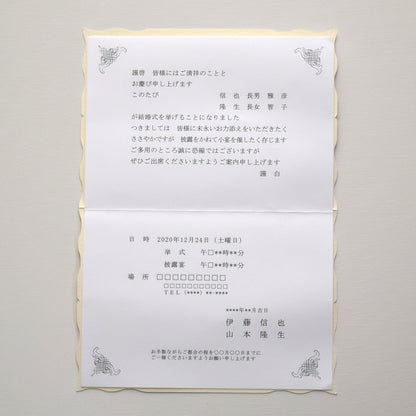 謹啓　皆様にはご清祥のことと
お慶び申し上げます
このたび　　　信 也　長男　雅 彦
隆 生　長女　智 子
が結婚式を挙げることになりました
つきましては　皆様に末永いお力添えをいただきたく
ささやかですが　披露をかねて小宴を催したく存じます
ご多用のところ誠に恐縮ではございますが
ぜひご出席くださいますようご案内申し上げます
謹 白
日 時　2020年12月24日（土曜日）
挙 式　午□**時**分
披露宴　午□**時**分
場 所　□□□□□□□□□
□□□□□□□□□□□
TEL (****) **-****
****年**月吉日
伊 藤 信 也
山 本 隆 生
お手数ながらご都合の程を〇〇月〇〇日までに
ご一報くださいますようお願い申し上げます